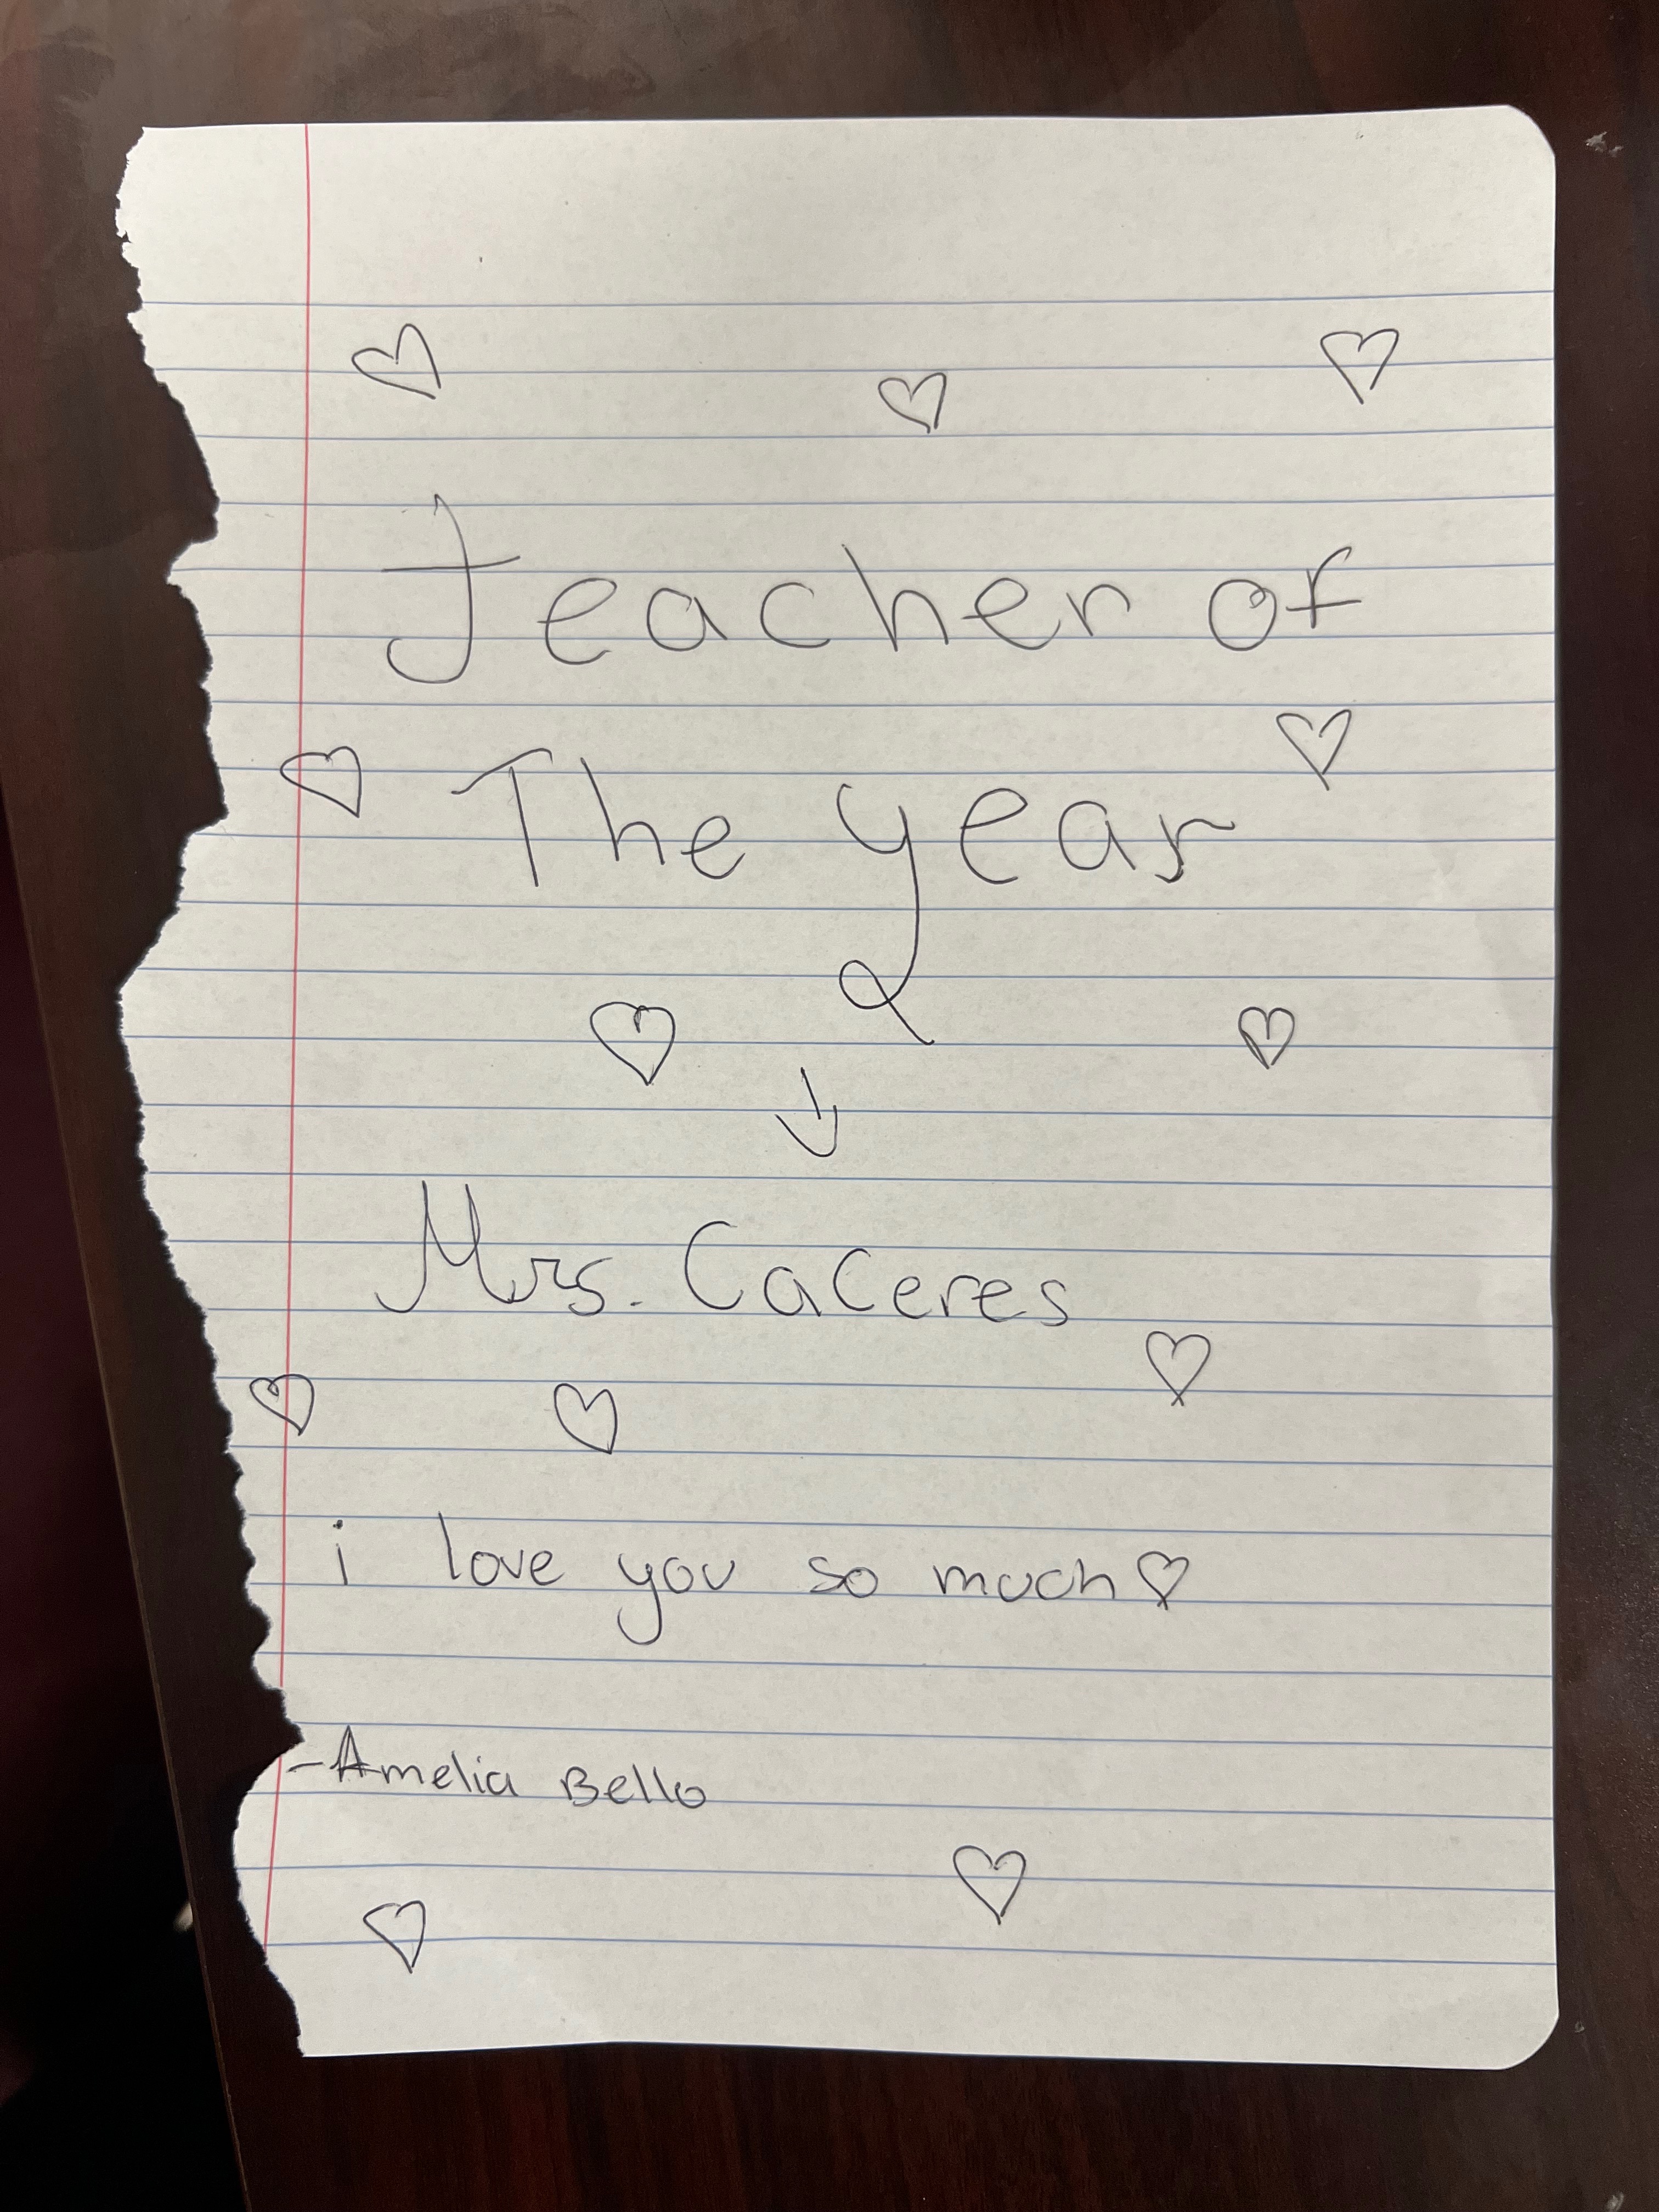 Teacher of
The year
Mrs. CaCeres
i love you so much♡
-Amelia Bello